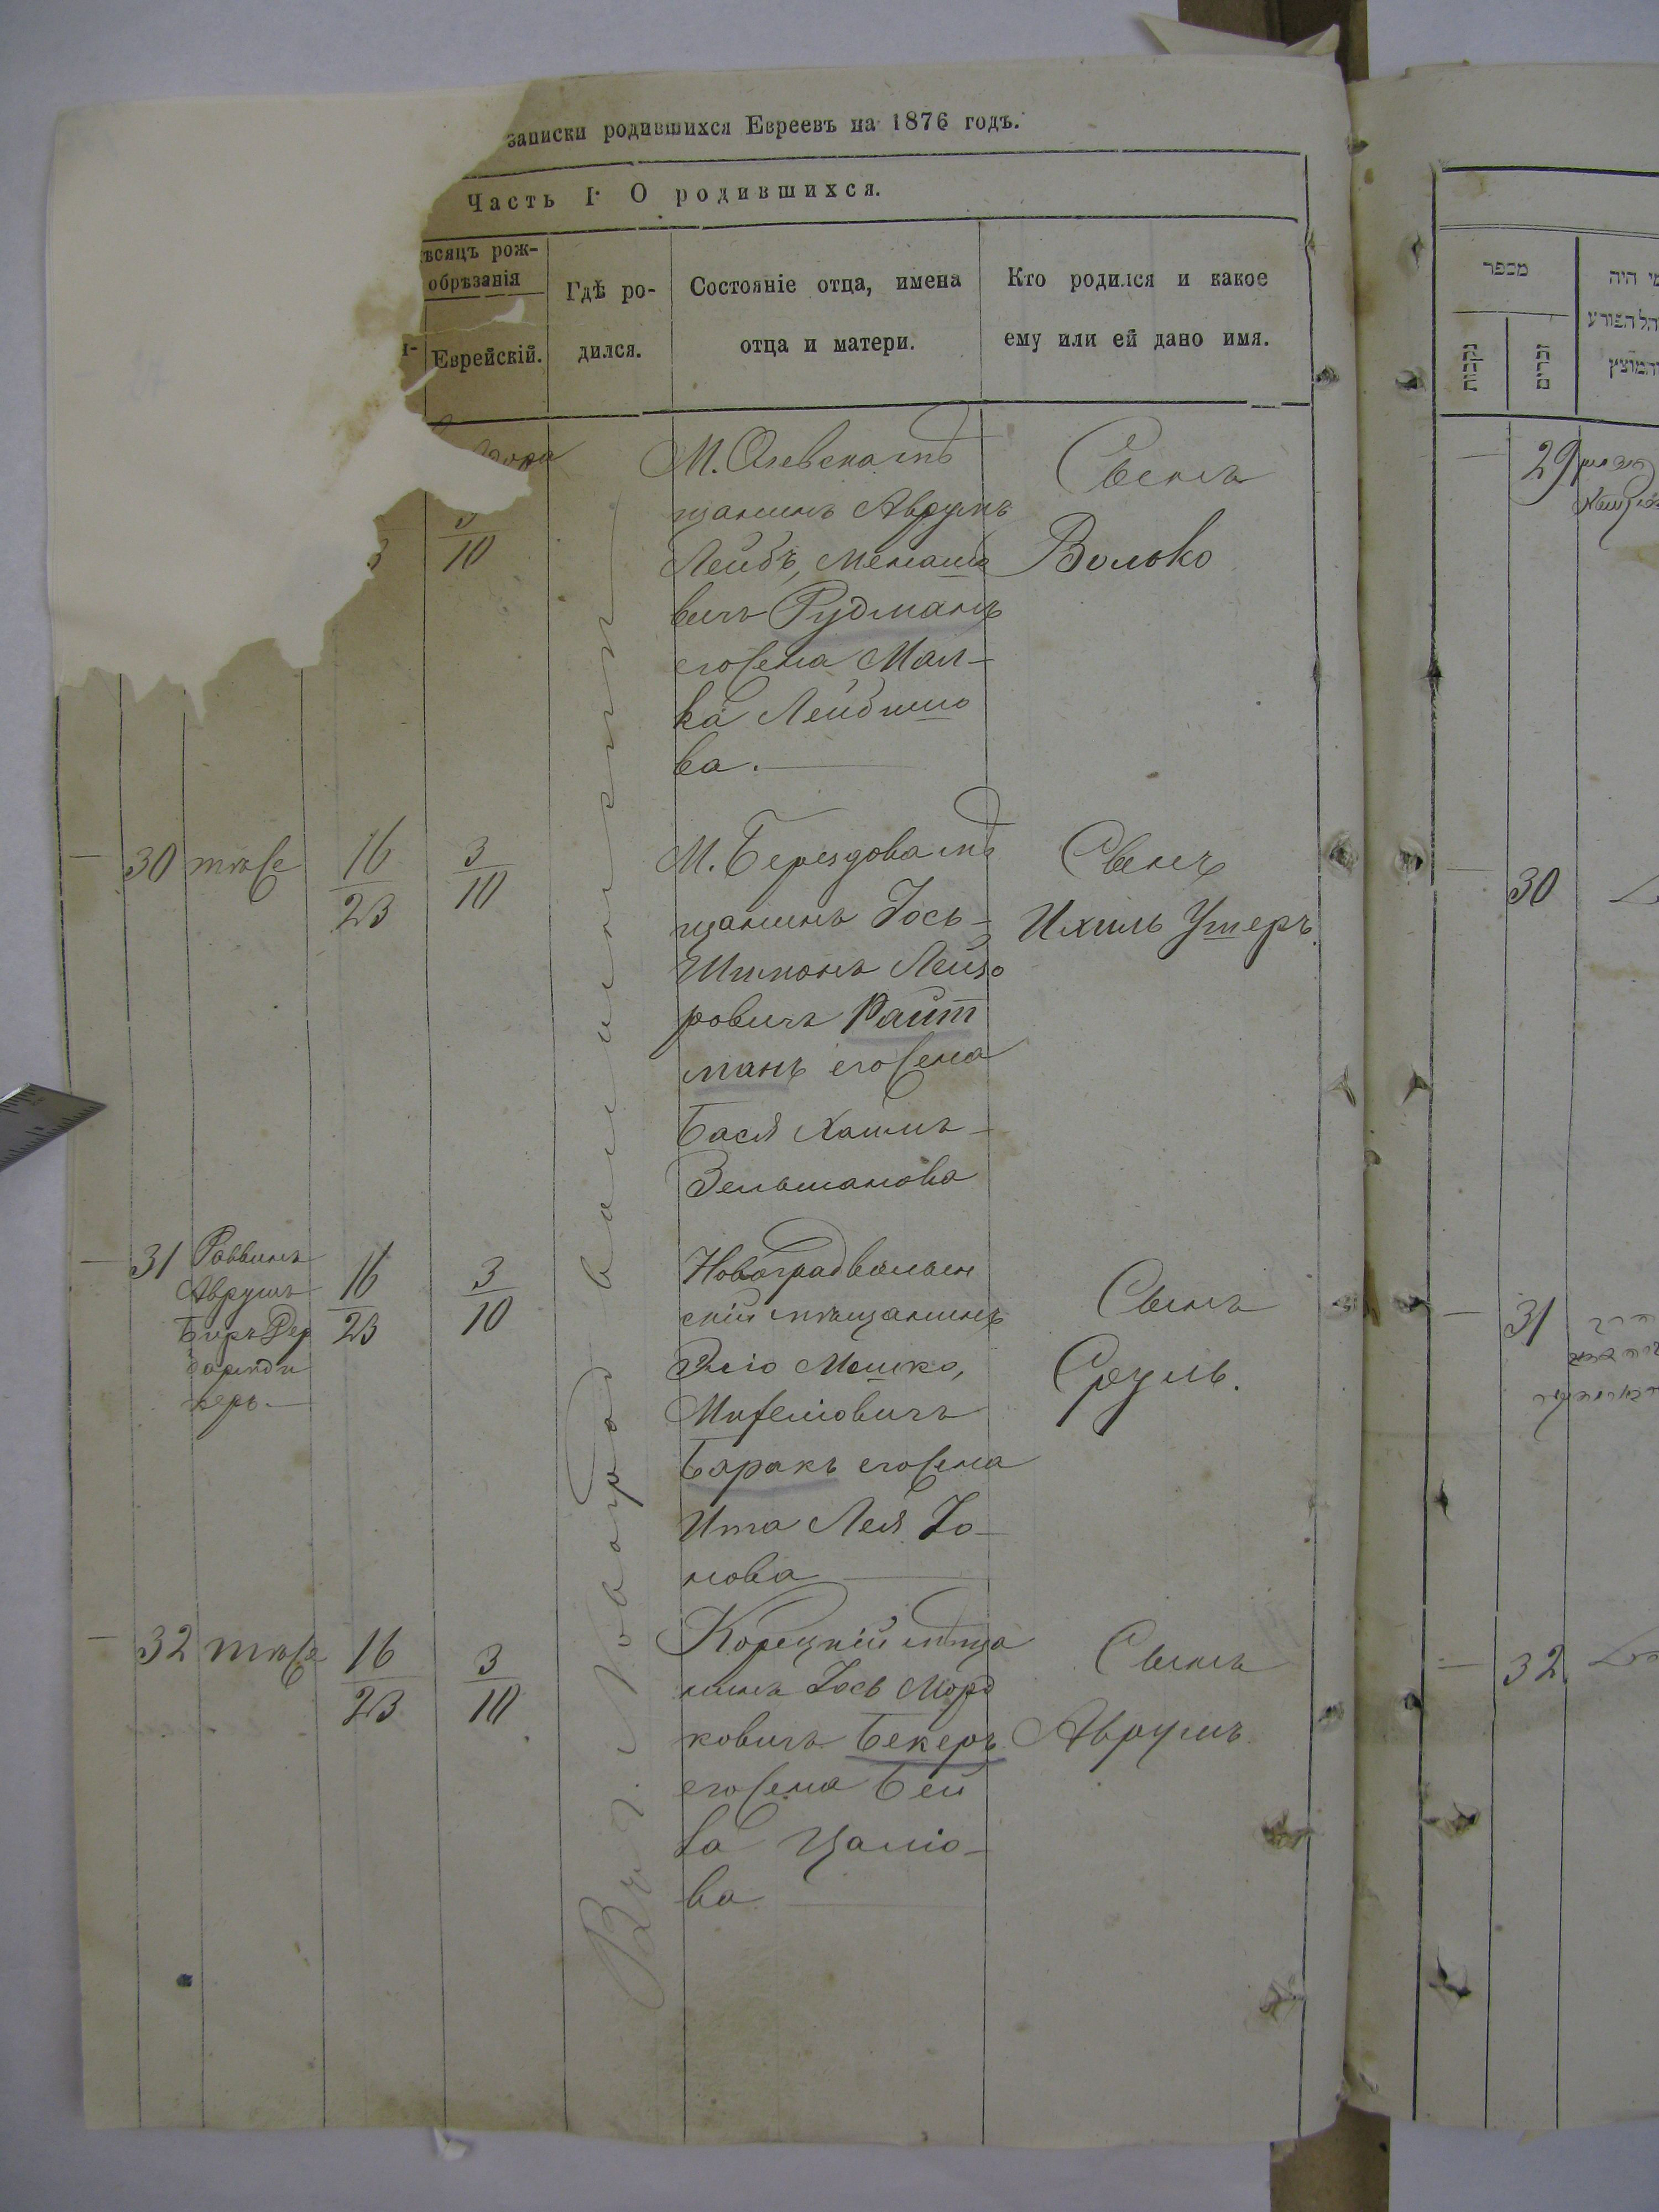 записки родившихся Евреевъ на 1876 годъ.
Часть I. О родившихся.
ѣсяцъ рож-
обрѣзанія
Еврейскій.
Гдѣ ро-
дился.
Состояніе отца, имена
отца и матери.
Кто родился и какое
ему или ей дано имя.
10
М. Олевска мѣ
щанинъ Аврумъ
Лейбъ, Менаше
вичъ Рудманъ
его жена Мал-
ка Лейбишо
ва.
Сынъ
Волько
30 тоже 16/23 3/10
М. Берездова мѣ
щанинъ Іось-
Шимонъ Лейзо
ровичъ Райт
манъ его жена
Бася Хаимъ-
Зельмановa
Сынъ
Ихиль Ушеръ
31 Раввинъ
Аврумъ
Беръ Дер
баримди
керъ.
16/23 3/10
Новоградволын
скій мѣщанинъ
Эліо Мошко,
Барахъ его жена
Ита Лея Іо-
нова
Сынъ
Сруль.
32 тоже 16/23 3/10
Корецкій мѣща
нинъ Іось Морд
ковичъ Бекеръ
его жена Бей
ла Цаліо-
ва
Сынъ
Аврумъ
Въ г. Новоградволынскѣ
מספר
נקבות
זכרים
מי היה
29
30
31
32